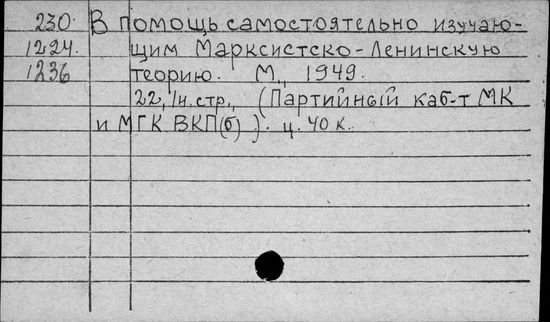 230. В помощь самостоятельно изучаю-
1224. щим Марксистско-Ленинскую
1236 теорию. М., 1949.
22, 1н.стр., (Партийный каб-т МК
и МГК ВКП(б) ). ц. 40 к.